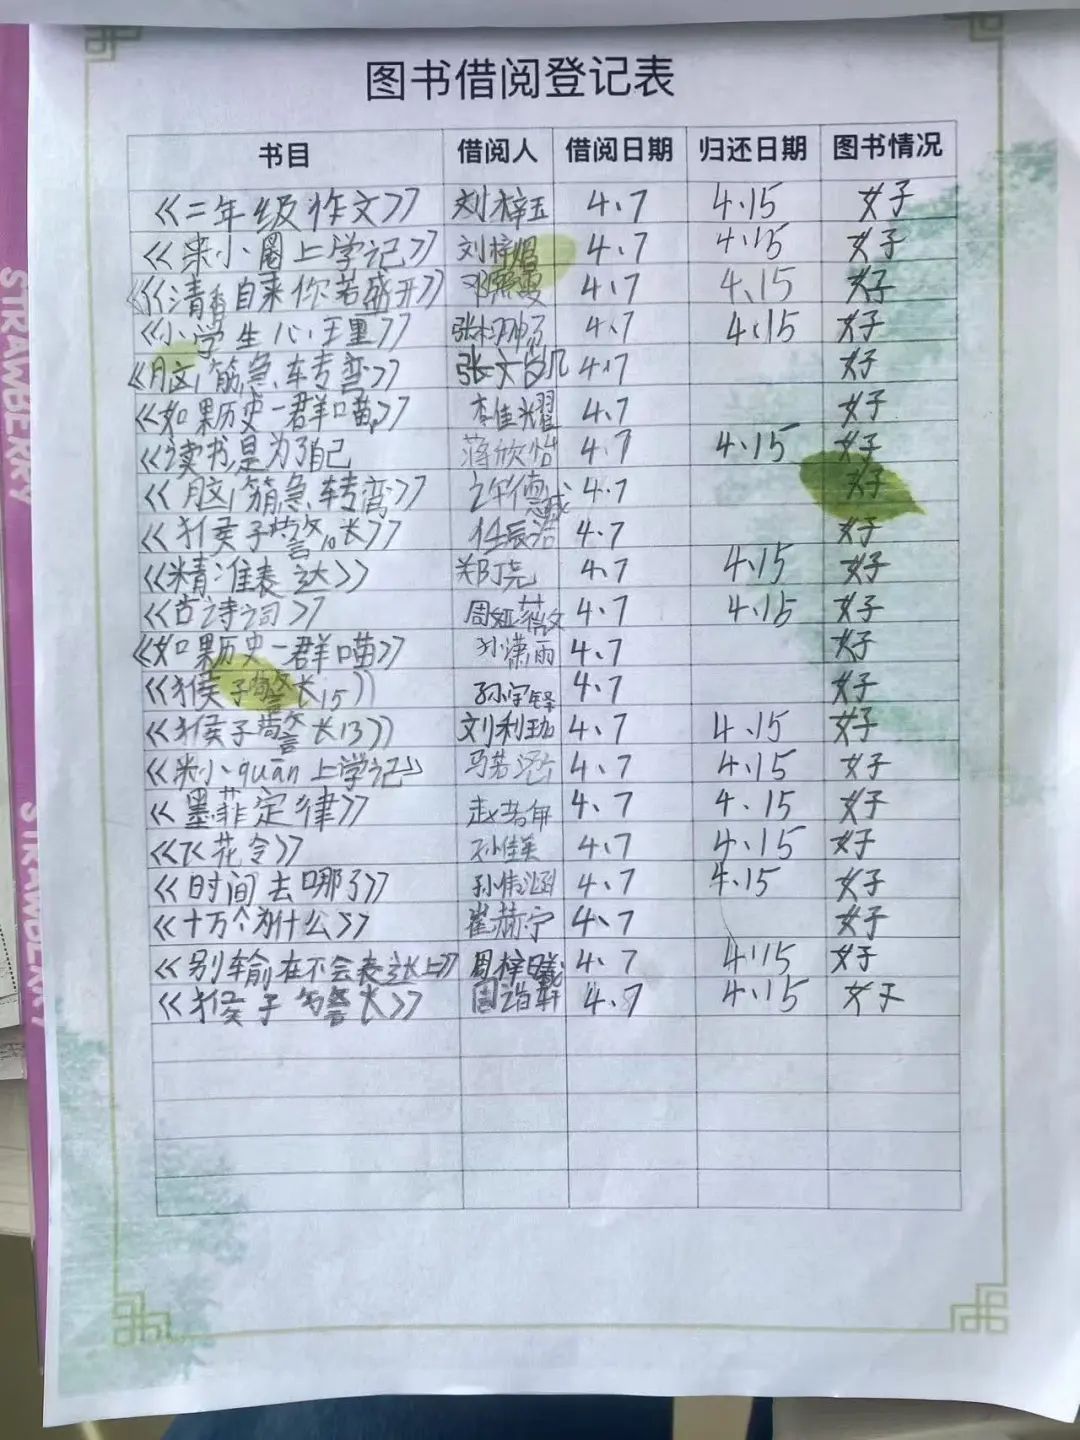 图书借阅登记表
书目 借阅人 借阅日期 归还日期 图书情况
《二年级作文》 刘梓玉 4、7 4、15 好
《米小圈上学记》 刘梓 4、7 4、15 好
《清香自来你若盛开》 邓 4、7 4、15 好
《小学生心王里》 张 4、7 4、15 好
《脑筋急转弯》 张 4、7 好
《如果历史一群喵》 李佳耀 4、7 好
《读书是为了自己 蒋欣怡 4、7 4、15 好
《脑筋急转弯》 4、7 好
《猴子警长10》 任辰浩 4、7 好
《精准表达》 郑 4、7 4、15 好
《古诗词》 周娅薇 4、7 4、15 好
《如果历史一群喵》 孙潇雨 4、7 好
《猴子警长15》 孙宇铎 4、7 好
《猴子警长13》 刘利珈 4、7 4、15 好
《米小quān上学记》 马若涵 4、7 4、15 好
《墨菲定律》 赵若冉 4、7 4、15 好
《飞花令》 孙佳美 4、7 4、15 好
《时间去哪了》 孙伟涵 4、7 4、15 好
《十万个为什么》 崔赫宁 4、7 好
《别输在不会表达上》 周梓曦 4、7 4、15 好
《猴子警长》 轩 4、7 4、15 好
STRAWBERRY
STRAWBERRY